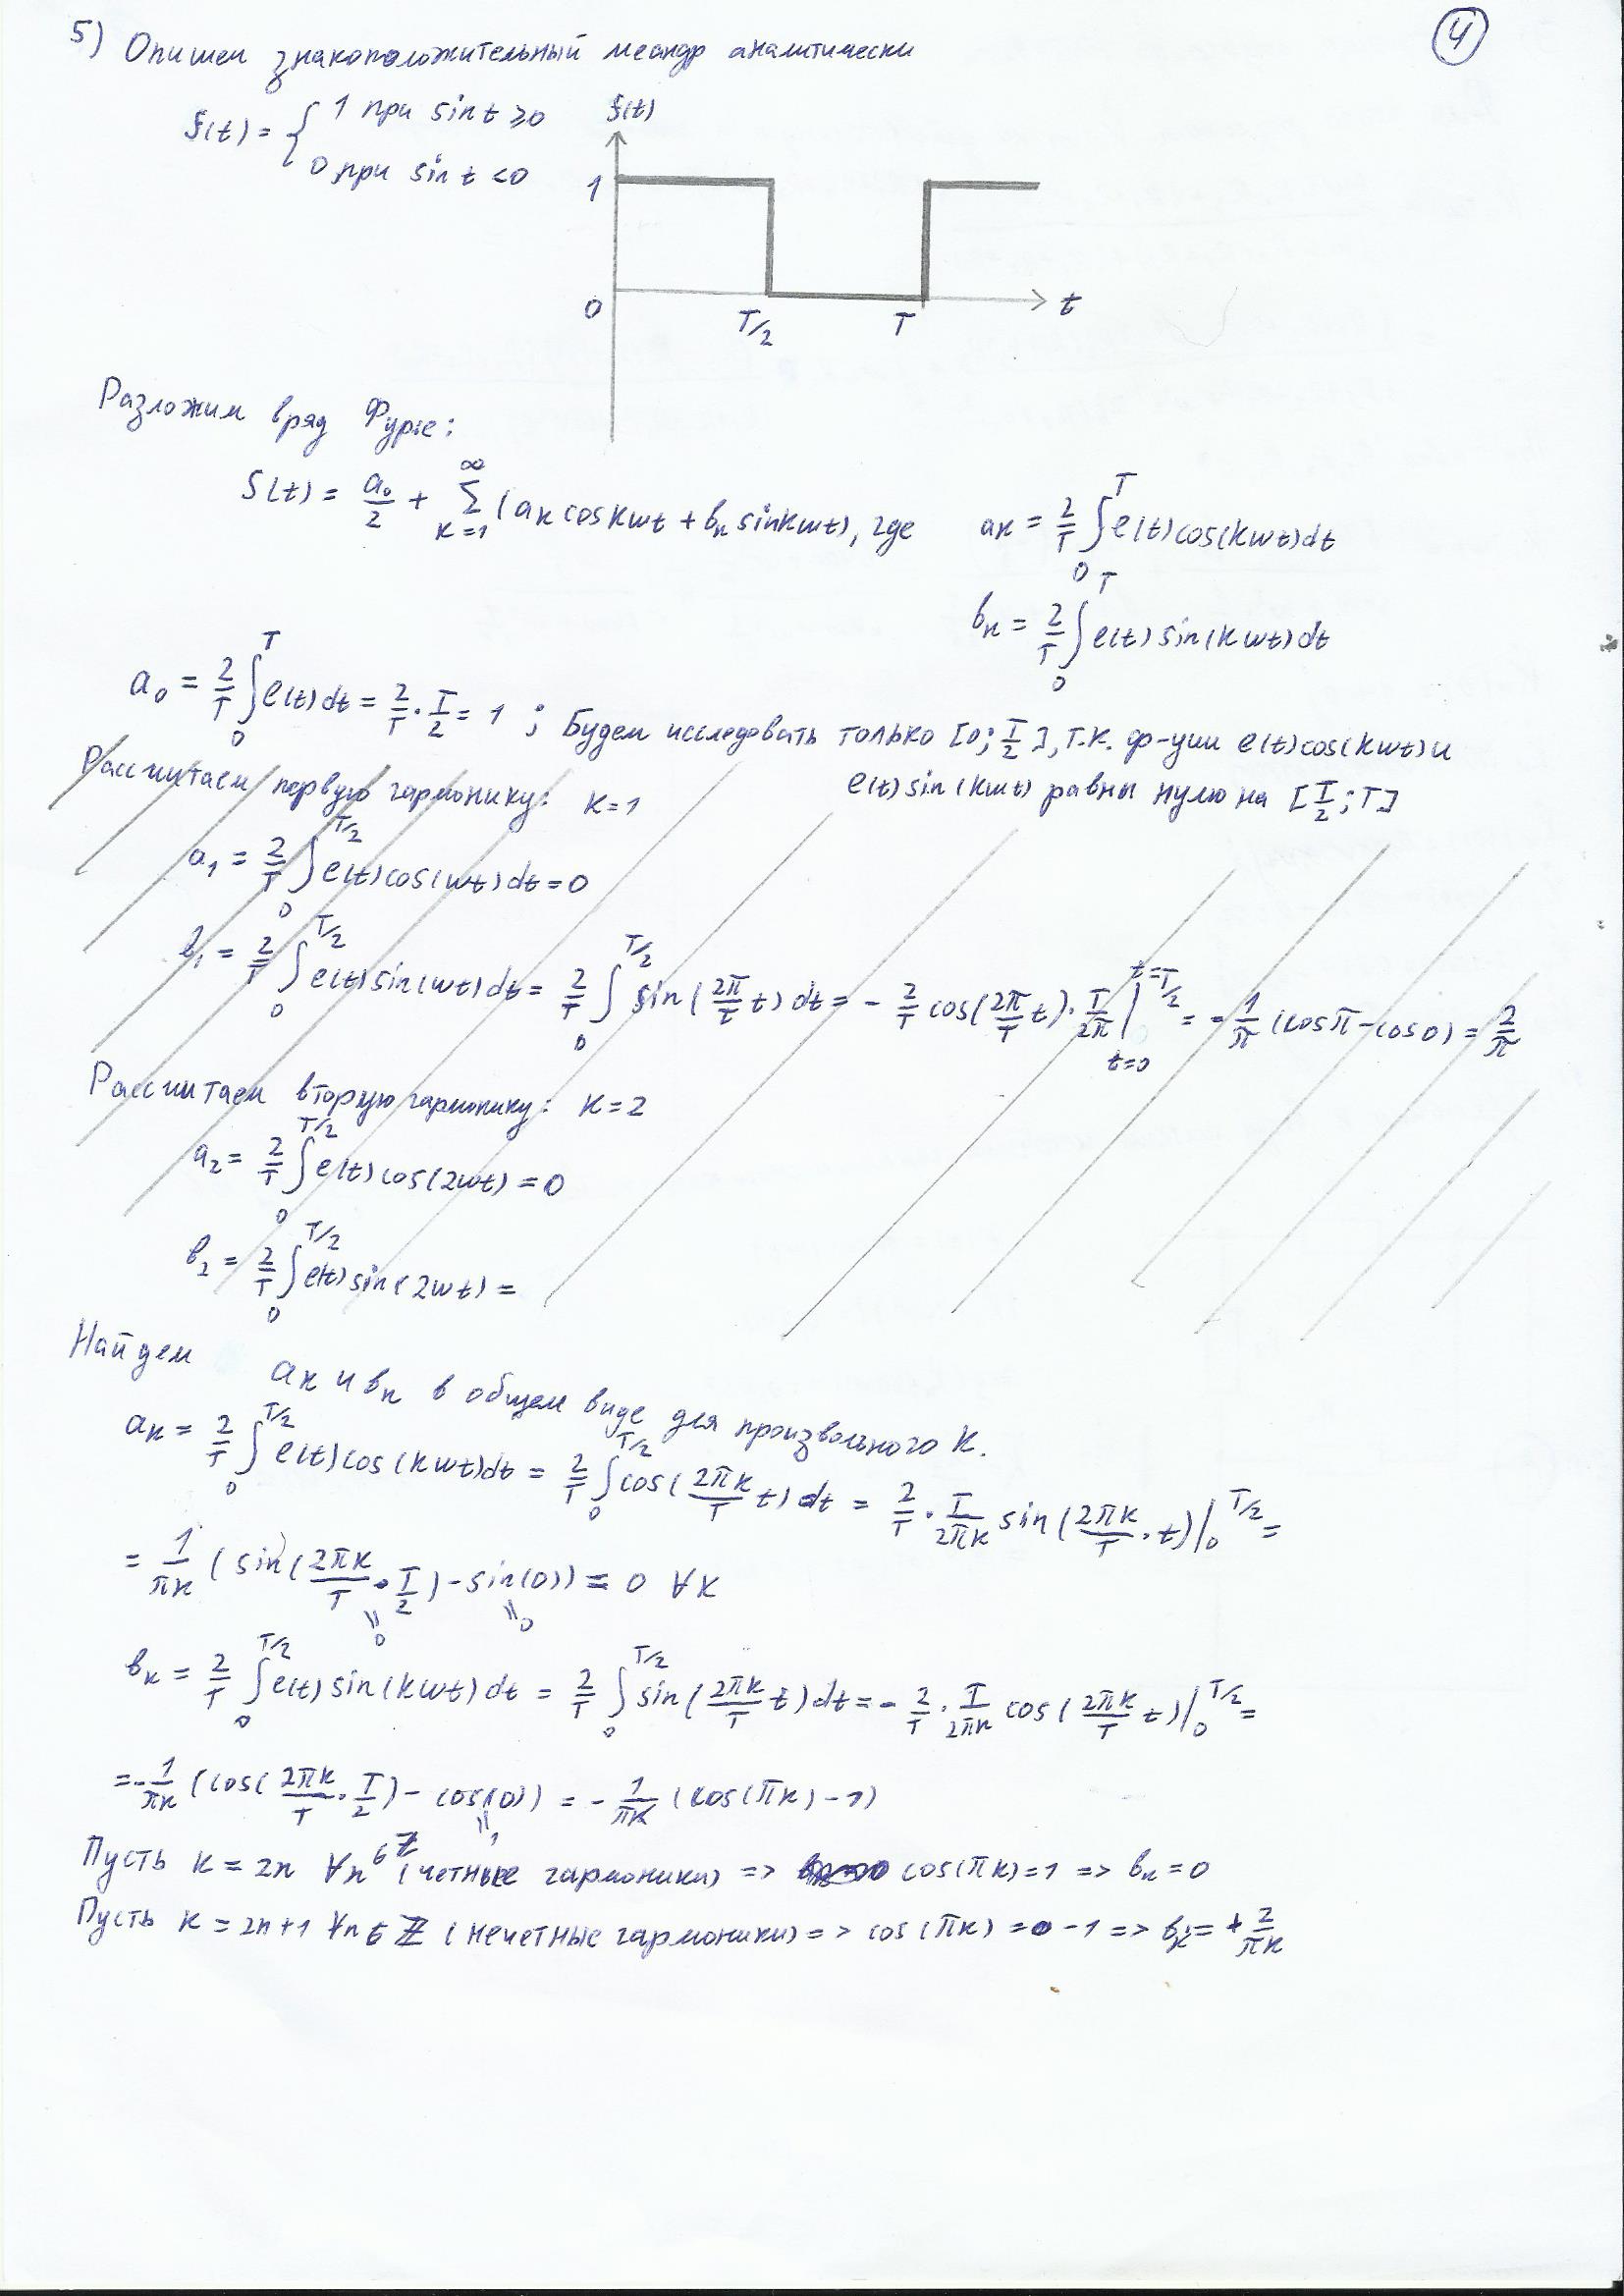 5) Опишем знакоположительный меандр аналитически
4
f(t) = { 1 при sin t ≥ 0
0 при sin t < 0
f(t)
1
0
T/2
T
t
Разложим в ряд Фурье:
S(t) = a₀/2 + ∑_{k=1}^{∞} (aₖ cos kωt + bₖ sin kωt), где
aₖ = 2/T ∫₀ᵀ e(t) cos(kωt) dt
bₖ = 2/T ∫₀ᵀ e(t) sin(kωt) dt
a₀ = 2/T ∫₀ᵀ e(t) dt = 2/T · T/2 = 1 ; Будем исследовать только [0; T/2], т.к. ф-уии e(t) cos(kωt) и
e(t) sin(kωt) равны нулю на [T/2; T]
Рассчитаем первую гармонику: k=1
a₁ = 2/T ∫₀^{T/2} e(t) cos(ωt) dt = 0
b₁ = 2/T ∫₀^{T/2} e(t) sin(ωt) dt = 2/T ∫₀^{T/2} sin(2π/T t) dt = - 2/T cos(2π/T t) · T/2π |_{t=0}^{t=T/2} = - 1/π (cos π - cos 0) = 2/π
Рассчитаем вторую гармонику: k=2
a₂ = 2/T ∫₀^{T/2} e(t) cos(2ωt) = 0
b₂ = 2/T ∫₀^{T/2} e(t) sin(2ωt) =
Найдем aₖ и bₖ в общем виде для произвольного k.
aₖ = 2/T ∫₀^{T/2} e(t) cos(kωt) dt = 2/T ∫₀^{T/2} cos(2πk/T t) dt = 2/T · T/2πk sin(2πk/T · t) |₀^{T/2} =
= 1/πk (sin(2πk/T · T/2) - sin(0)) = 0 ∀k
|| 0 || 0
bₖ = 2/T ∫₀^{T/2} e(t) sin(kωt) dt = 2/T ∫₀^{T/2} sin(2πk/T t) dt = - 2/T · T/2πk cos(2πk/T t) |₀^{T/2} =
= - 1/πk (cos(2πk/T · T/2) - cos(0)) = - 1/πk (cos(πk) - 1)
|| 1
Пусть k = 2n ∀n∈ℤ (четные гармоники) => cos(πk) = 1 => bₖ = 0
Пусть k = 2n+1 ∀n∈ℤ (нечетные гармоники) => cos(πk) = -1 => bₖ = + 2/πk